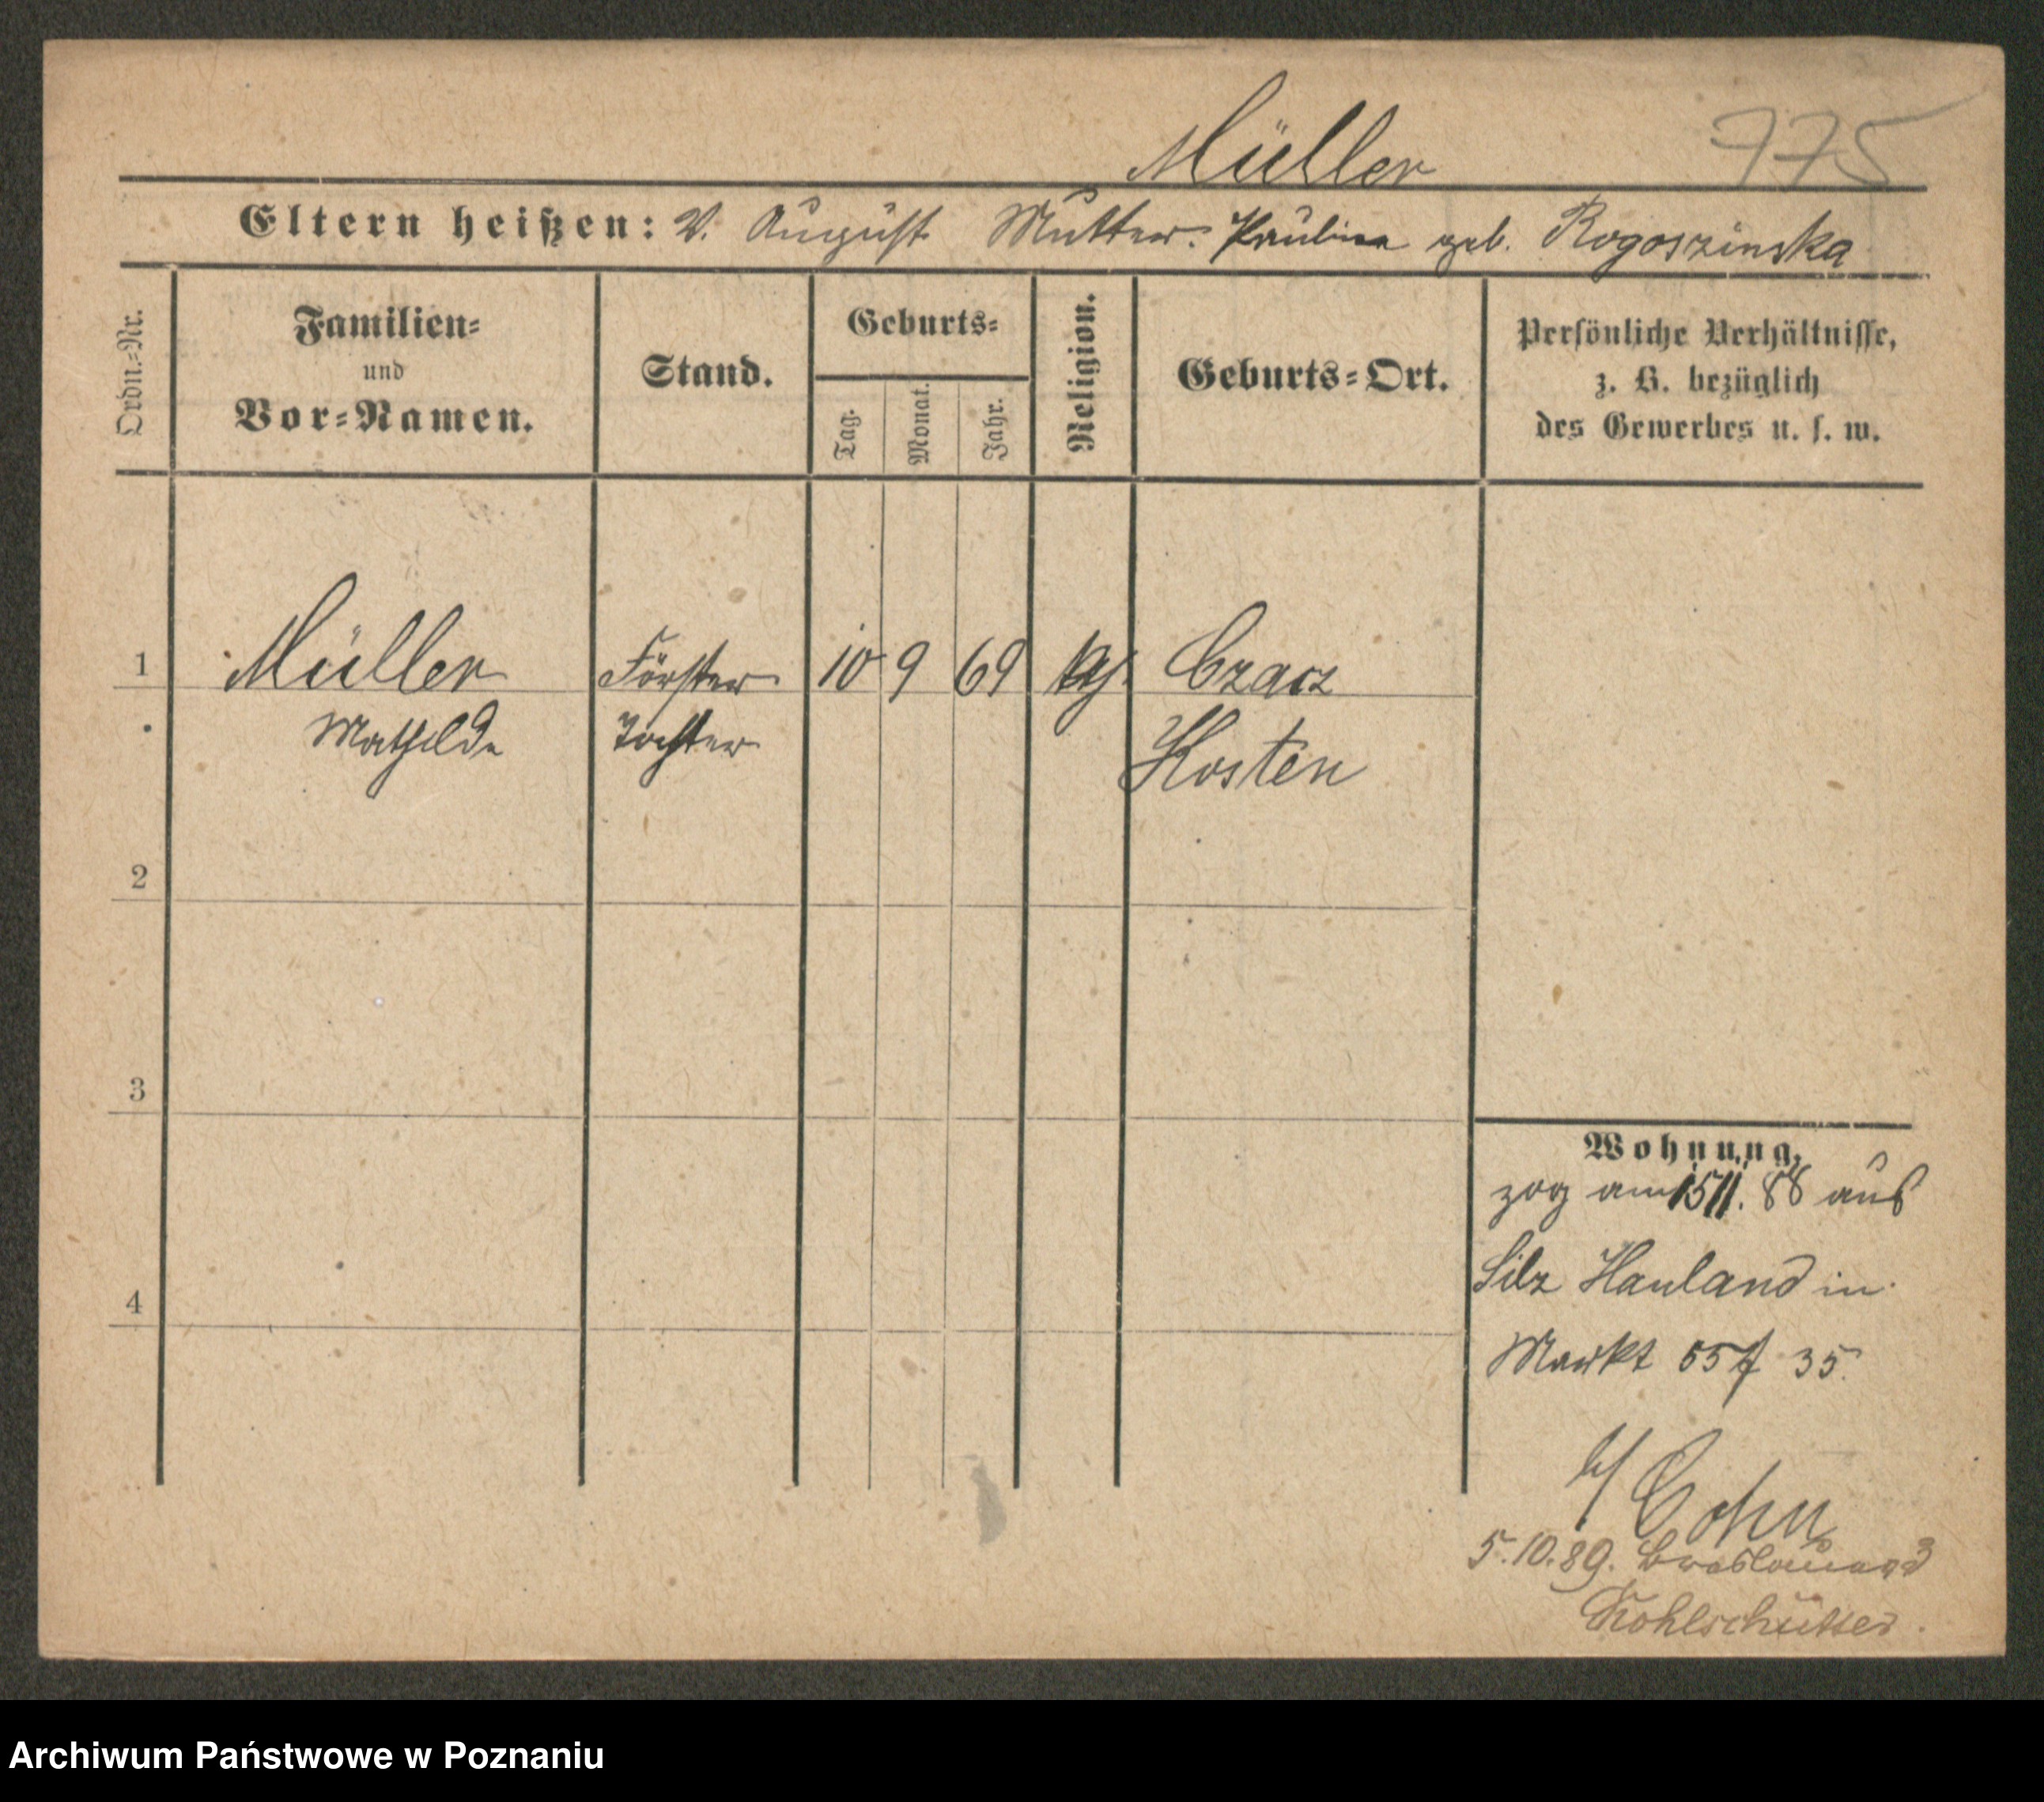 Müller 775
Eltern heißen: V. August Mutter: Paulina geb. Rogoszinska
Ordn.=Nr.
Familien=
und
Vor=Namen.
Stand.
Geburts=
Tag.
Monat.
Jahr.
Religion.
Geburts=Ort.
Persönliche Verhältnisse,
z. B. bezüglich
des Gewerbes u. s. w.
1 Müller Förster 10 9 69 Czacz
Mathilde Tochter Kosten
2
3
4
Wohnung.
zog am 15 11. 88 aus
Silz Hauland in
Markt 55/ 35.
b/ Cohn
5.10.89.
Kohlschütter.
Archiwum Państwowe w Poznaniu